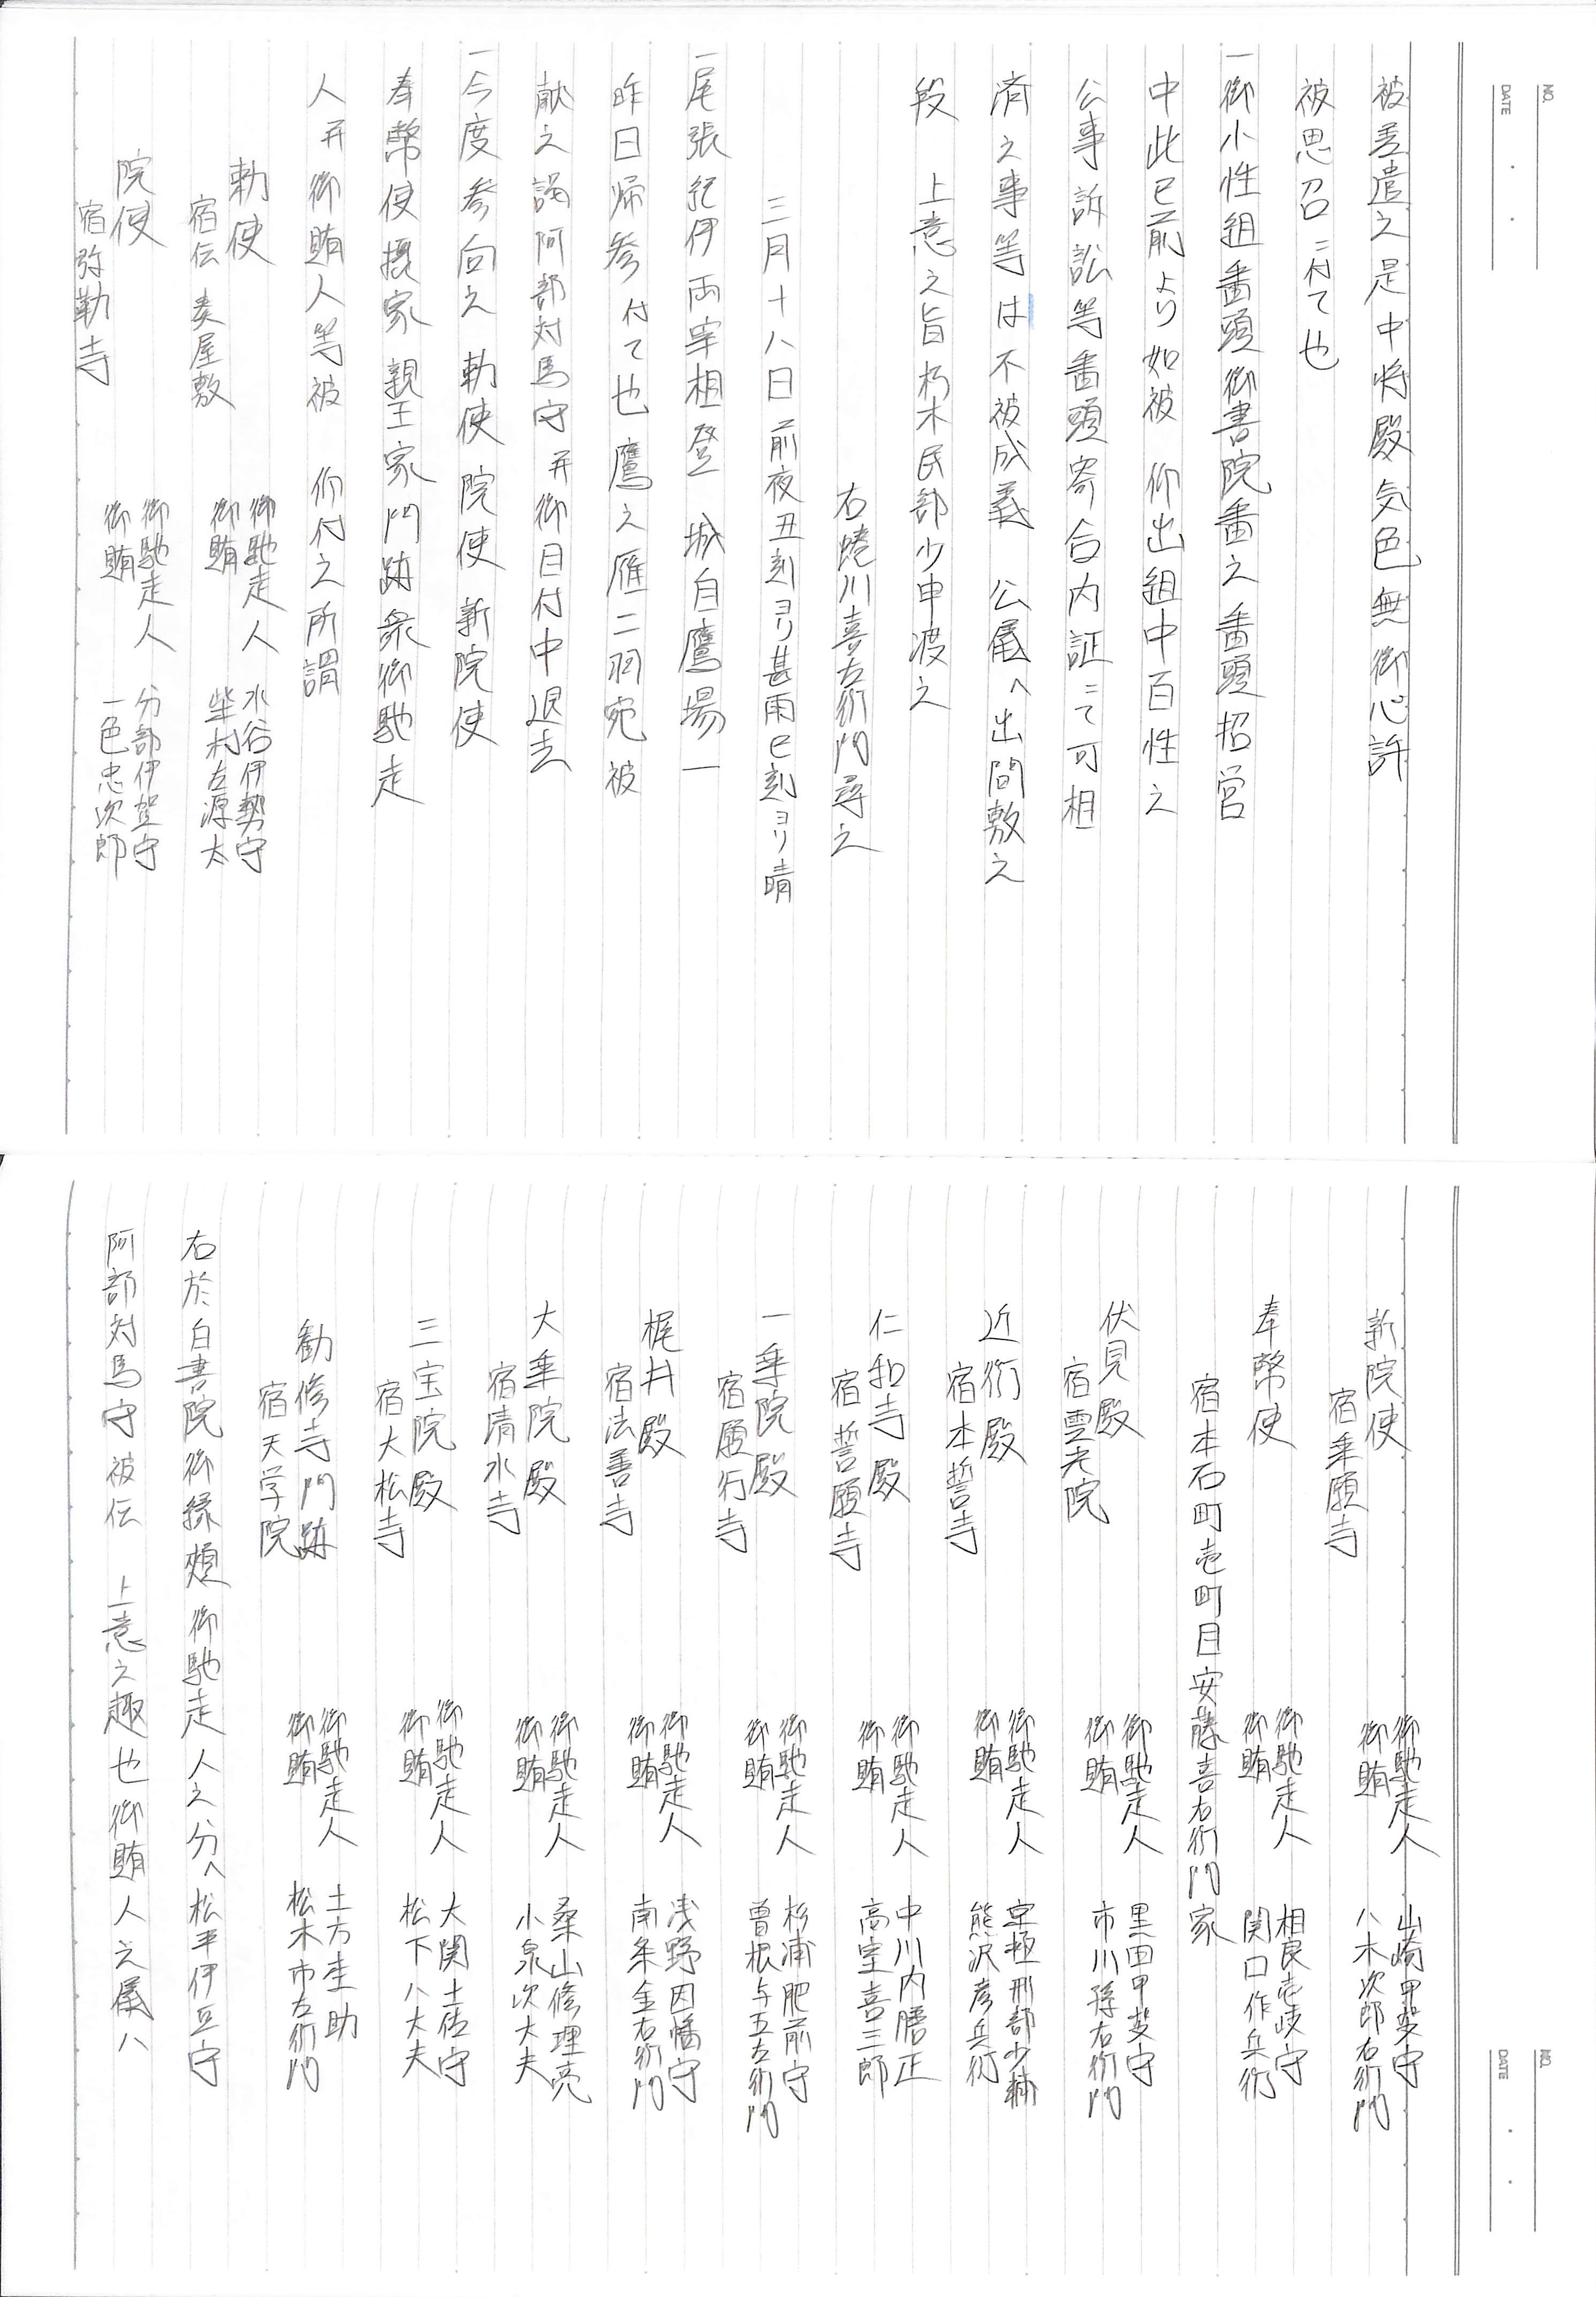 NO.
DATE
被差遣之是中将殿気色無御心許
被思召ニ付て也
一御小性組番頭御書院番之番頭招営
中此已前より如被 仰出組中百性之
公事訴訟等番頭寄合内証ニて可相
済之事等は不被成義 公儀へ出間敷之
段 上意之旨朽木民部少申渡之
右蜷川喜左衛門尋之
三月十八日前夜丑刻ヨリ甚雨巳刻ヨリ晴
一尾張紀伊両宰相登 城自鷹場一
昨日帰参付て也鷹之雁二羽宛被
献之謁阿部対馬守并御目付中退去
一今度参向之 勅使 院使 新院使
奉幣使摂家親王家門跡衆御馳走
人并御賄人等被 仰付之所謂
勅使
宿伝奏屋敷
御馳走人 水谷伊勢守
御賄 柴村左源太
院使
宿弥勒寺
御馳走人 分部伊賀守
御賄 一色忠次郎
NO.
DATE
新院使
宿乗願寺
御馳走人 山崎甲斐守
御賄 八木次郎右衛門
奉幣使
御馳走人 相良壱岐守
御賄 関口作兵衛
宿本石町壱町目安藤喜右衛門家
伏見殿
宿雲光院
御馳走人 黒田甲斐守
御賄 市川孫右衛門
近衛殿
宿本誓寺
御馳走人 京極刑部少輔
御賄 熊沢彦兵衛
仁和寺殿
宿誓願寺
御馳走人 中川内膳正
御賄 高室喜三郎
一乗院殿
宿願行寺
御馳走人 杉浦肥前守
御賄 曽根与五左衛門
梶井殿
宿法善寺
御馳走人 浅野因幡守
御賄 南条金右衛門
大乗院殿
宿清水寺
御馳走人 桑山修理亮
御賄 小泉次大夫
三宝院殿
宿大松寺
御馳走人 大関土佐守
御賄 松下八大夫
勧修寺門跡
宿天学院
御馳走人 土方杢助
御賄 松木市左衛門
右於白書院御縁頬御馳走人之分へ松平伊豆守
阿部対馬守被伝 上意之趣也御賄人之儀ハ